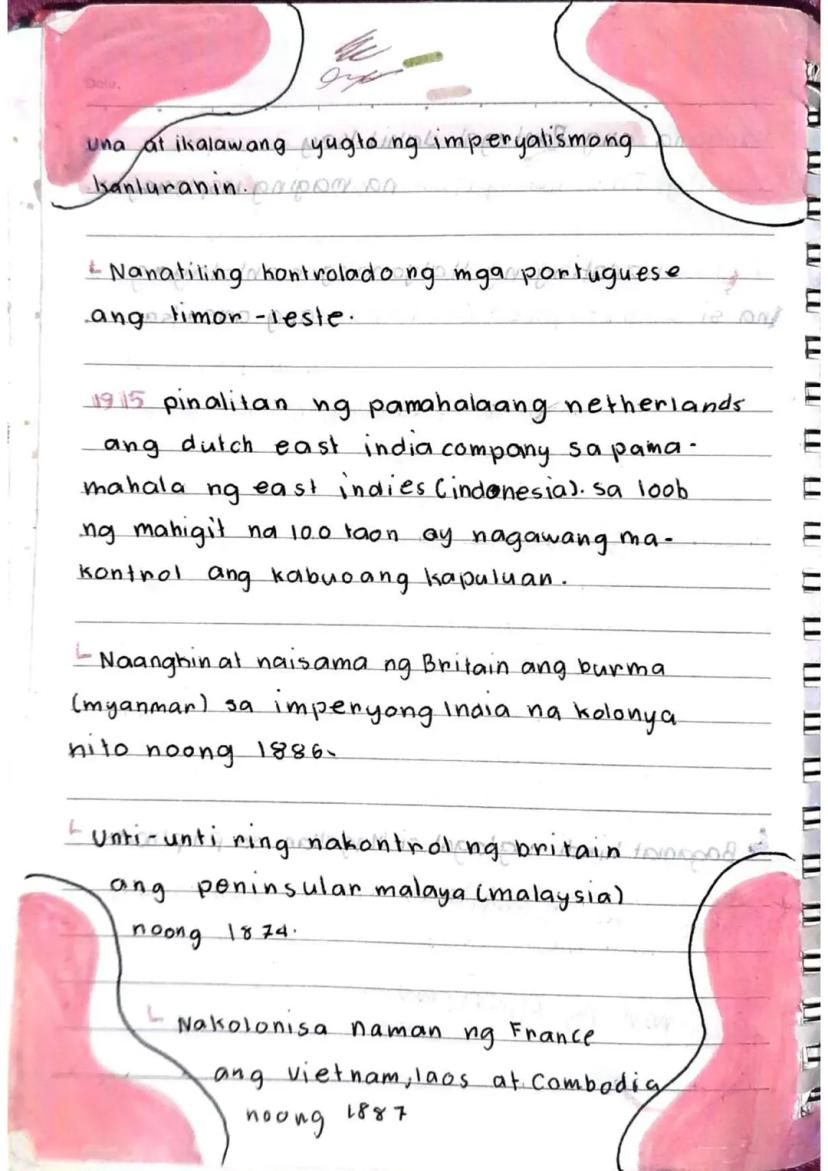 una at ikalawang yugto ng imperyalismong
kanluranin.
Nanatiling kontrolado ng mga portuguese
ang timor-leste.
1915 pinalitan ng pamahalaang netherlands
ang dutch east india company sa pama-
mahala ng east indies (indonesia). sa loob
ng mahigit na 100 taon ay nagawang ma-
kontrol ang kabuoang kapuluan.
Naangkin at naisama ng Britain ang burma
(myanmar) sa impenyong India na kolonya
nito noong 1886.
Unti-unti ring nakontrol ng britain
ang peninsular malaya (malaysia)
noong 1874.
Nakolonisa naman ng France
ang vietnam, laos at Combodia
noong 1887